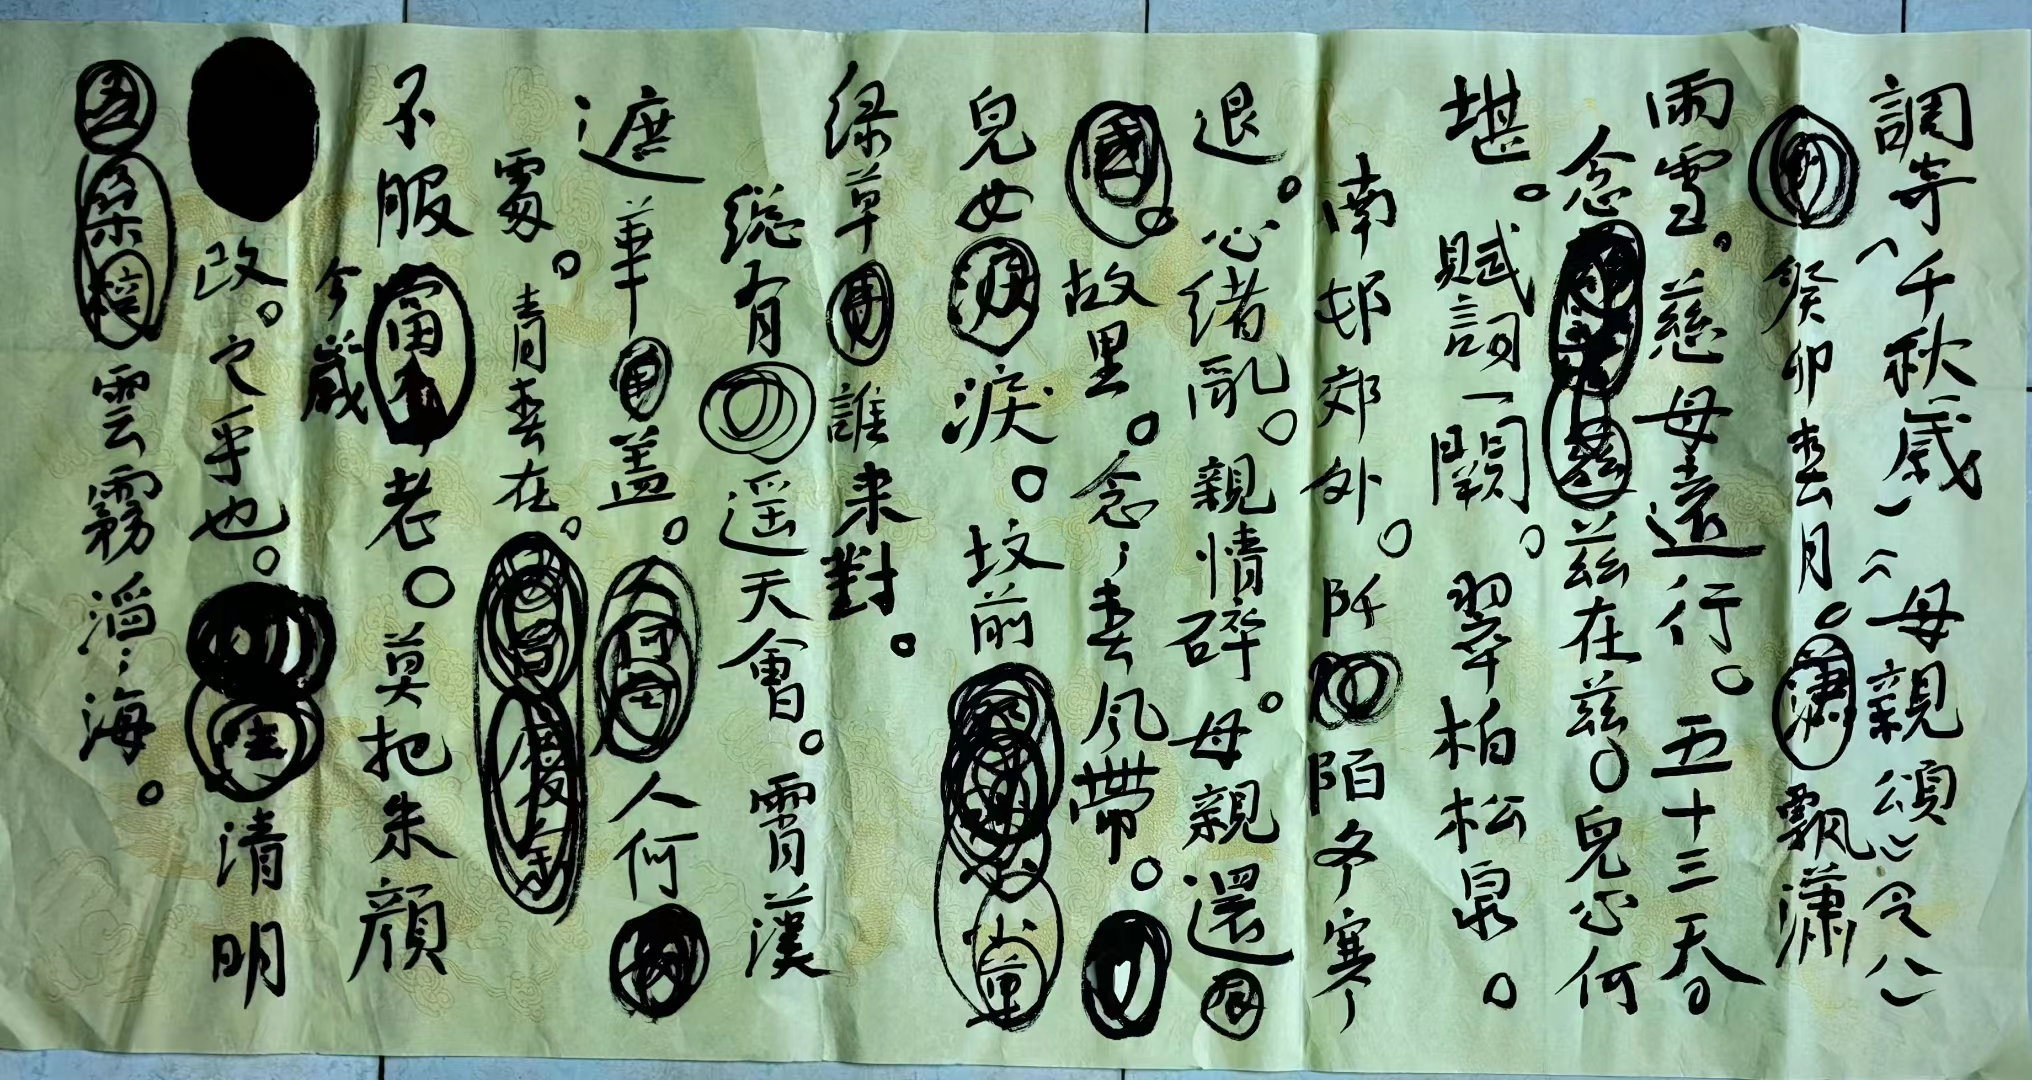 調寄《千秋歲》《母親頌》(令八)
癸卯春月。飄瀟
雨雪。慈母遠行。五十三天。
念茲在茲。兒心何
堪。賦詞一闋。翠柏松泉。
南邨郊外。阡陌多寒
退。心緒亂。親情碎。母親還
故里。念念春風帶。
兒女淚。坟前
绿草誰来對。
総有遥天會。霄漢
遮華蓋。人何
處。青春在。
不服老。莫把朱顔
今歲
改。之乎也。清明
雲霧滔滔海。